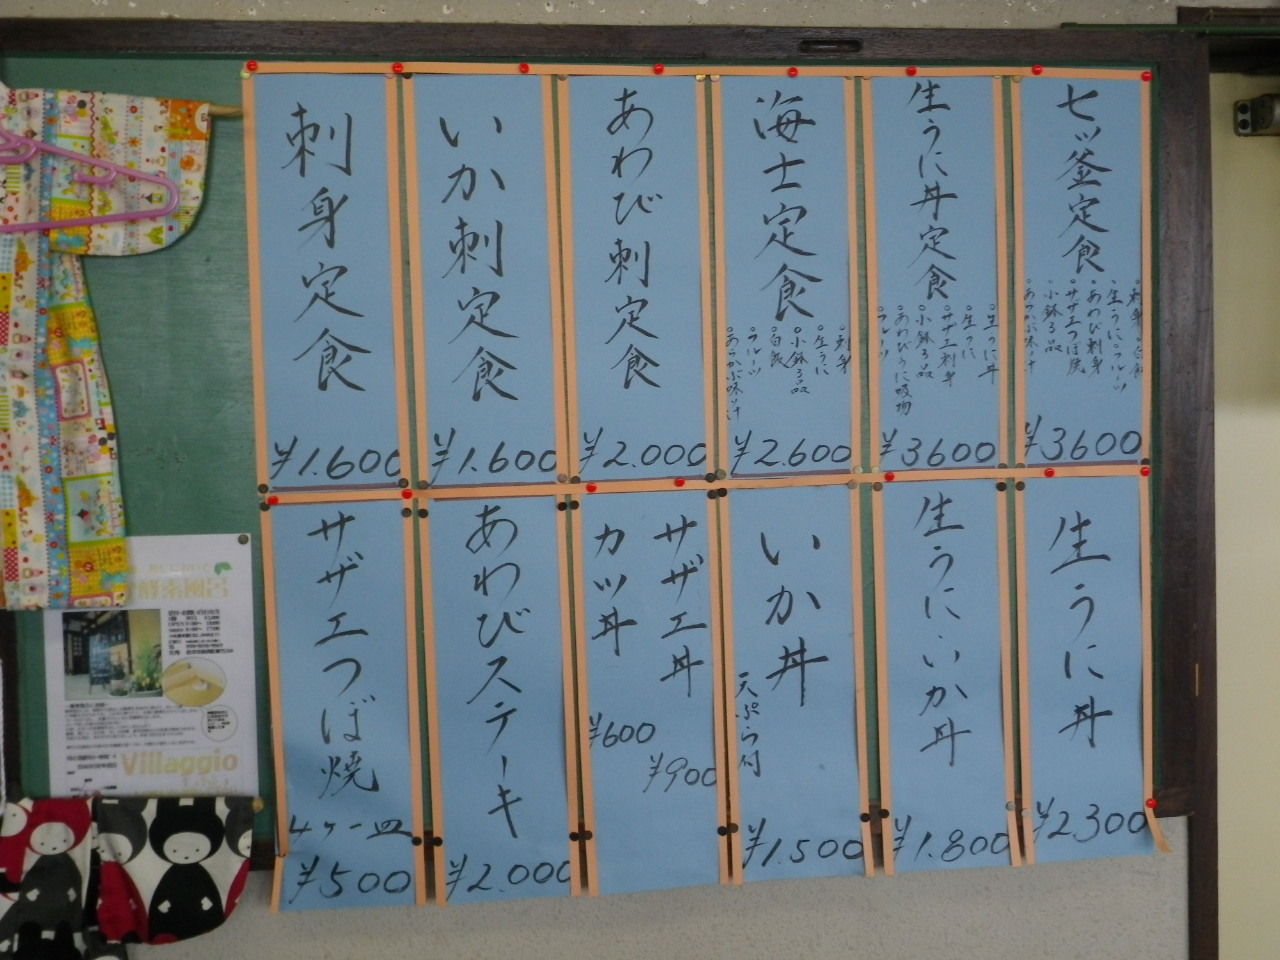 七ッ釜定食
刺身
白飯
生うに
フルーツ
あわび刺身
サザエつぼ焼
小鉢3品
あらかぶ味噌汁
¥3600
生うに丼定食
生うに丼
生うに
サザエ刺身
小鉢3品
あわびうに吸物
フルーツ
¥3600
海士定食
刺身
生うに
小鉢3品
白飯
フルーツ
あらかぶ味噌汁
¥2.600
あわび刺定食
¥2.000
いか刺定食
¥1.600
刺身定食
¥1.600
生うに丼
¥2300
生うにいか丼
¥1.800
いか丼
天ぷら付
¥1.500
サザエ丼
¥900
カツ丼
¥600
あわびステーキ
¥2.000
サザエつぼ焼
4ケ一皿
¥500
Villaggio